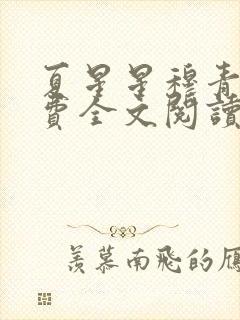 夏星星穆青
費全文閱讀
羨慕南飛的雁